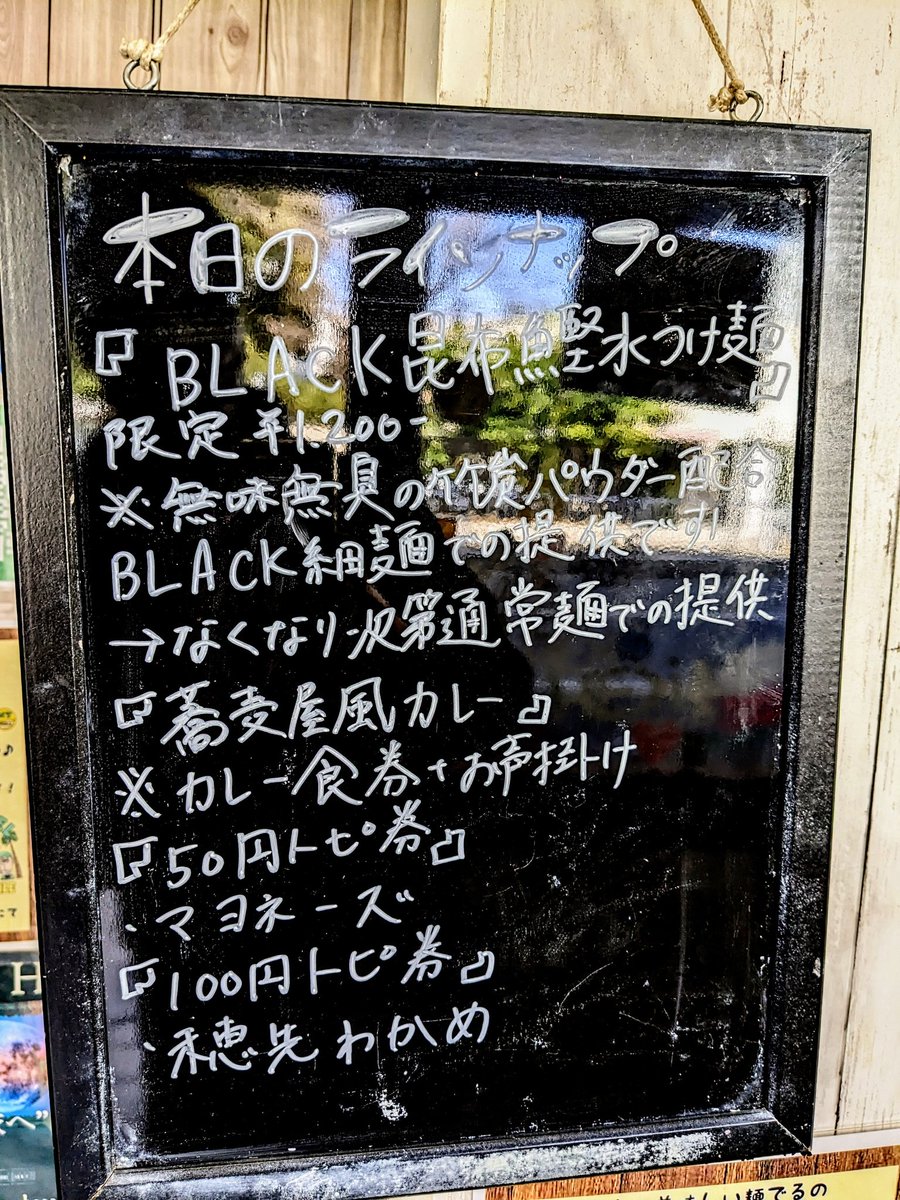 本日のラインナップ
『BLACK昆布鰹水つけ麺』
限定 ¥1.200-
※無味無臭の竹炭パウダー配合
BLACK細麺での提供です!
→なくなり次第通常麺での提供
『蕎麦屋風カレー』
※カレー食券+お声掛け
『50円トピ券』
・マヨネーズ
『100円トピ券』
・穂先わかめ
H